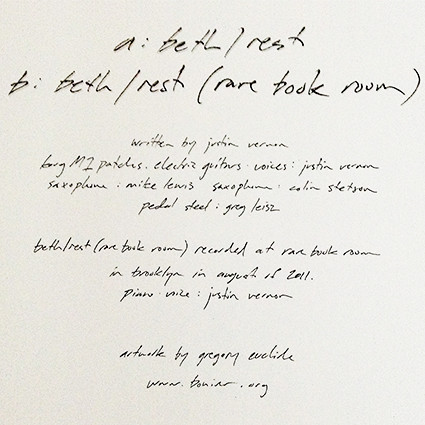 a: beth/rest
b: beth/rest (rare book room)
written by justin vernon
korg M1 patches. electric guitars. voices: justin vernon
saxophone: mike lewis saxophone: colin stetson
pedal steel: greg leisz
beth/rest (rare book room) recorded at rare book room
in brooklyn in august of 2011.
piano. voice: justin vernon
artwork by gregory euclide
www.boniver.org